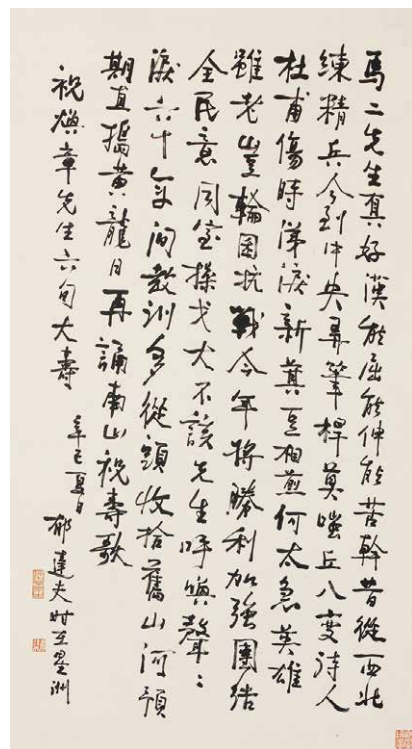 馬二先生真好漢能屈能伸能苦幹昔從西北
練精兵今到中央弄筆桿莫嗤丘八變詩人
杜甫傷時涕淚新萁豆相煎何太急英雄
雖老豈輪囷抗戰今年將勝利加強團結
全民意同室操戈大不該先生呼喚聲〻
淚六十年間教訓多從頭收拾舊山河預
期直搗黃龍日再誦南山祝壽歌
祝煥章先生六旬大壽
辛巳夏日
郁達夫時在星洲